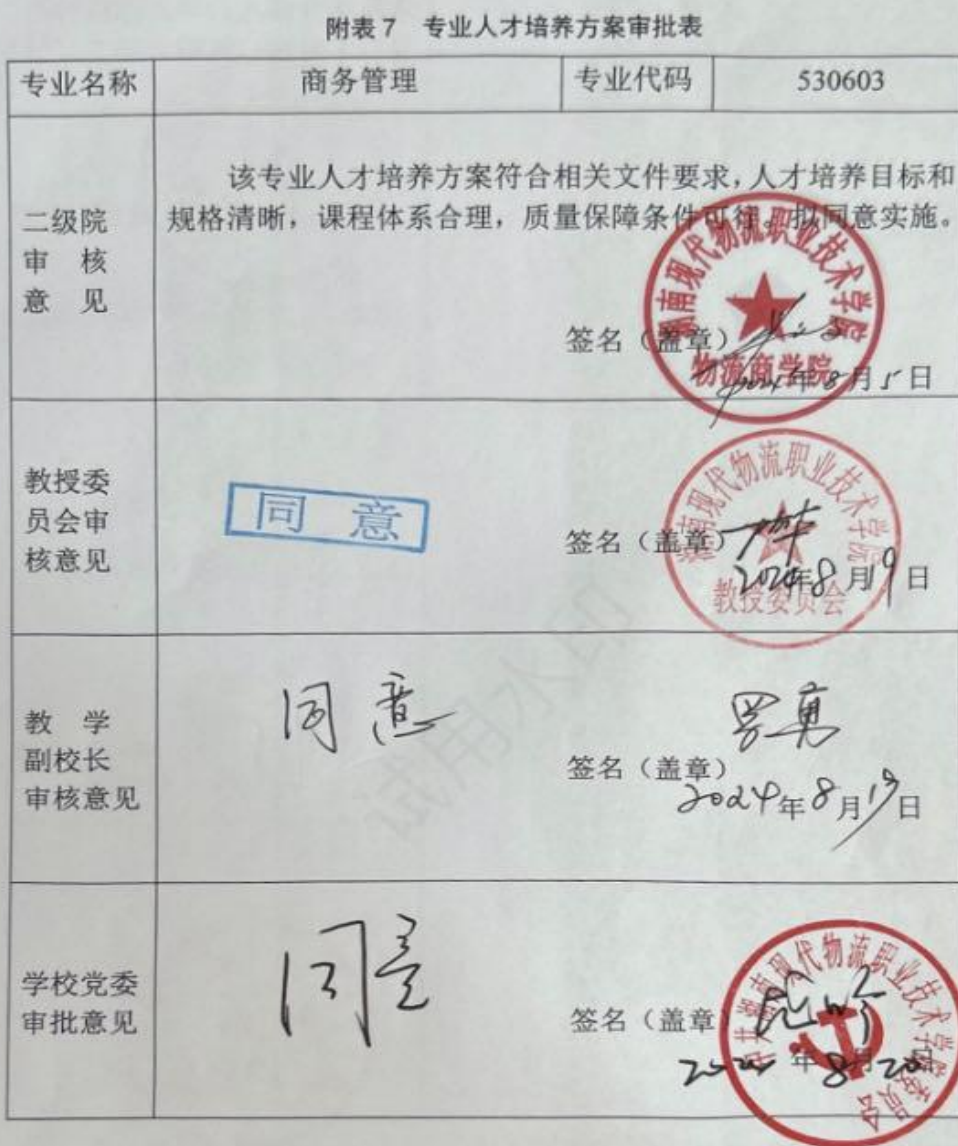 附表 7 专业人才培养方案审批表
专业名称 商务管理 专业代码 530603
二级院
审 核
意 见
该专业人才培养方案符合相关文件要求，人才培养目标和
规格清晰，课程体系合理，质量保障条件可行。拟同意实施。
签名（盖章）
湖南现代物流职业技术学院
物流商学院
2024年8月5日
教授委
员会审
核意见
同 意
签名（盖章）
湖南现代物流职业技术学院
教授委员会
2024年8月19日
教 学
副校长
审核意见
同意
签名（盖章）
罗勇
2024年8月19日
学校党委
审批意见
同意
签名（盖章
中共湖南现代物流职业技术学院
委员会
2024年8月20日
试用水印